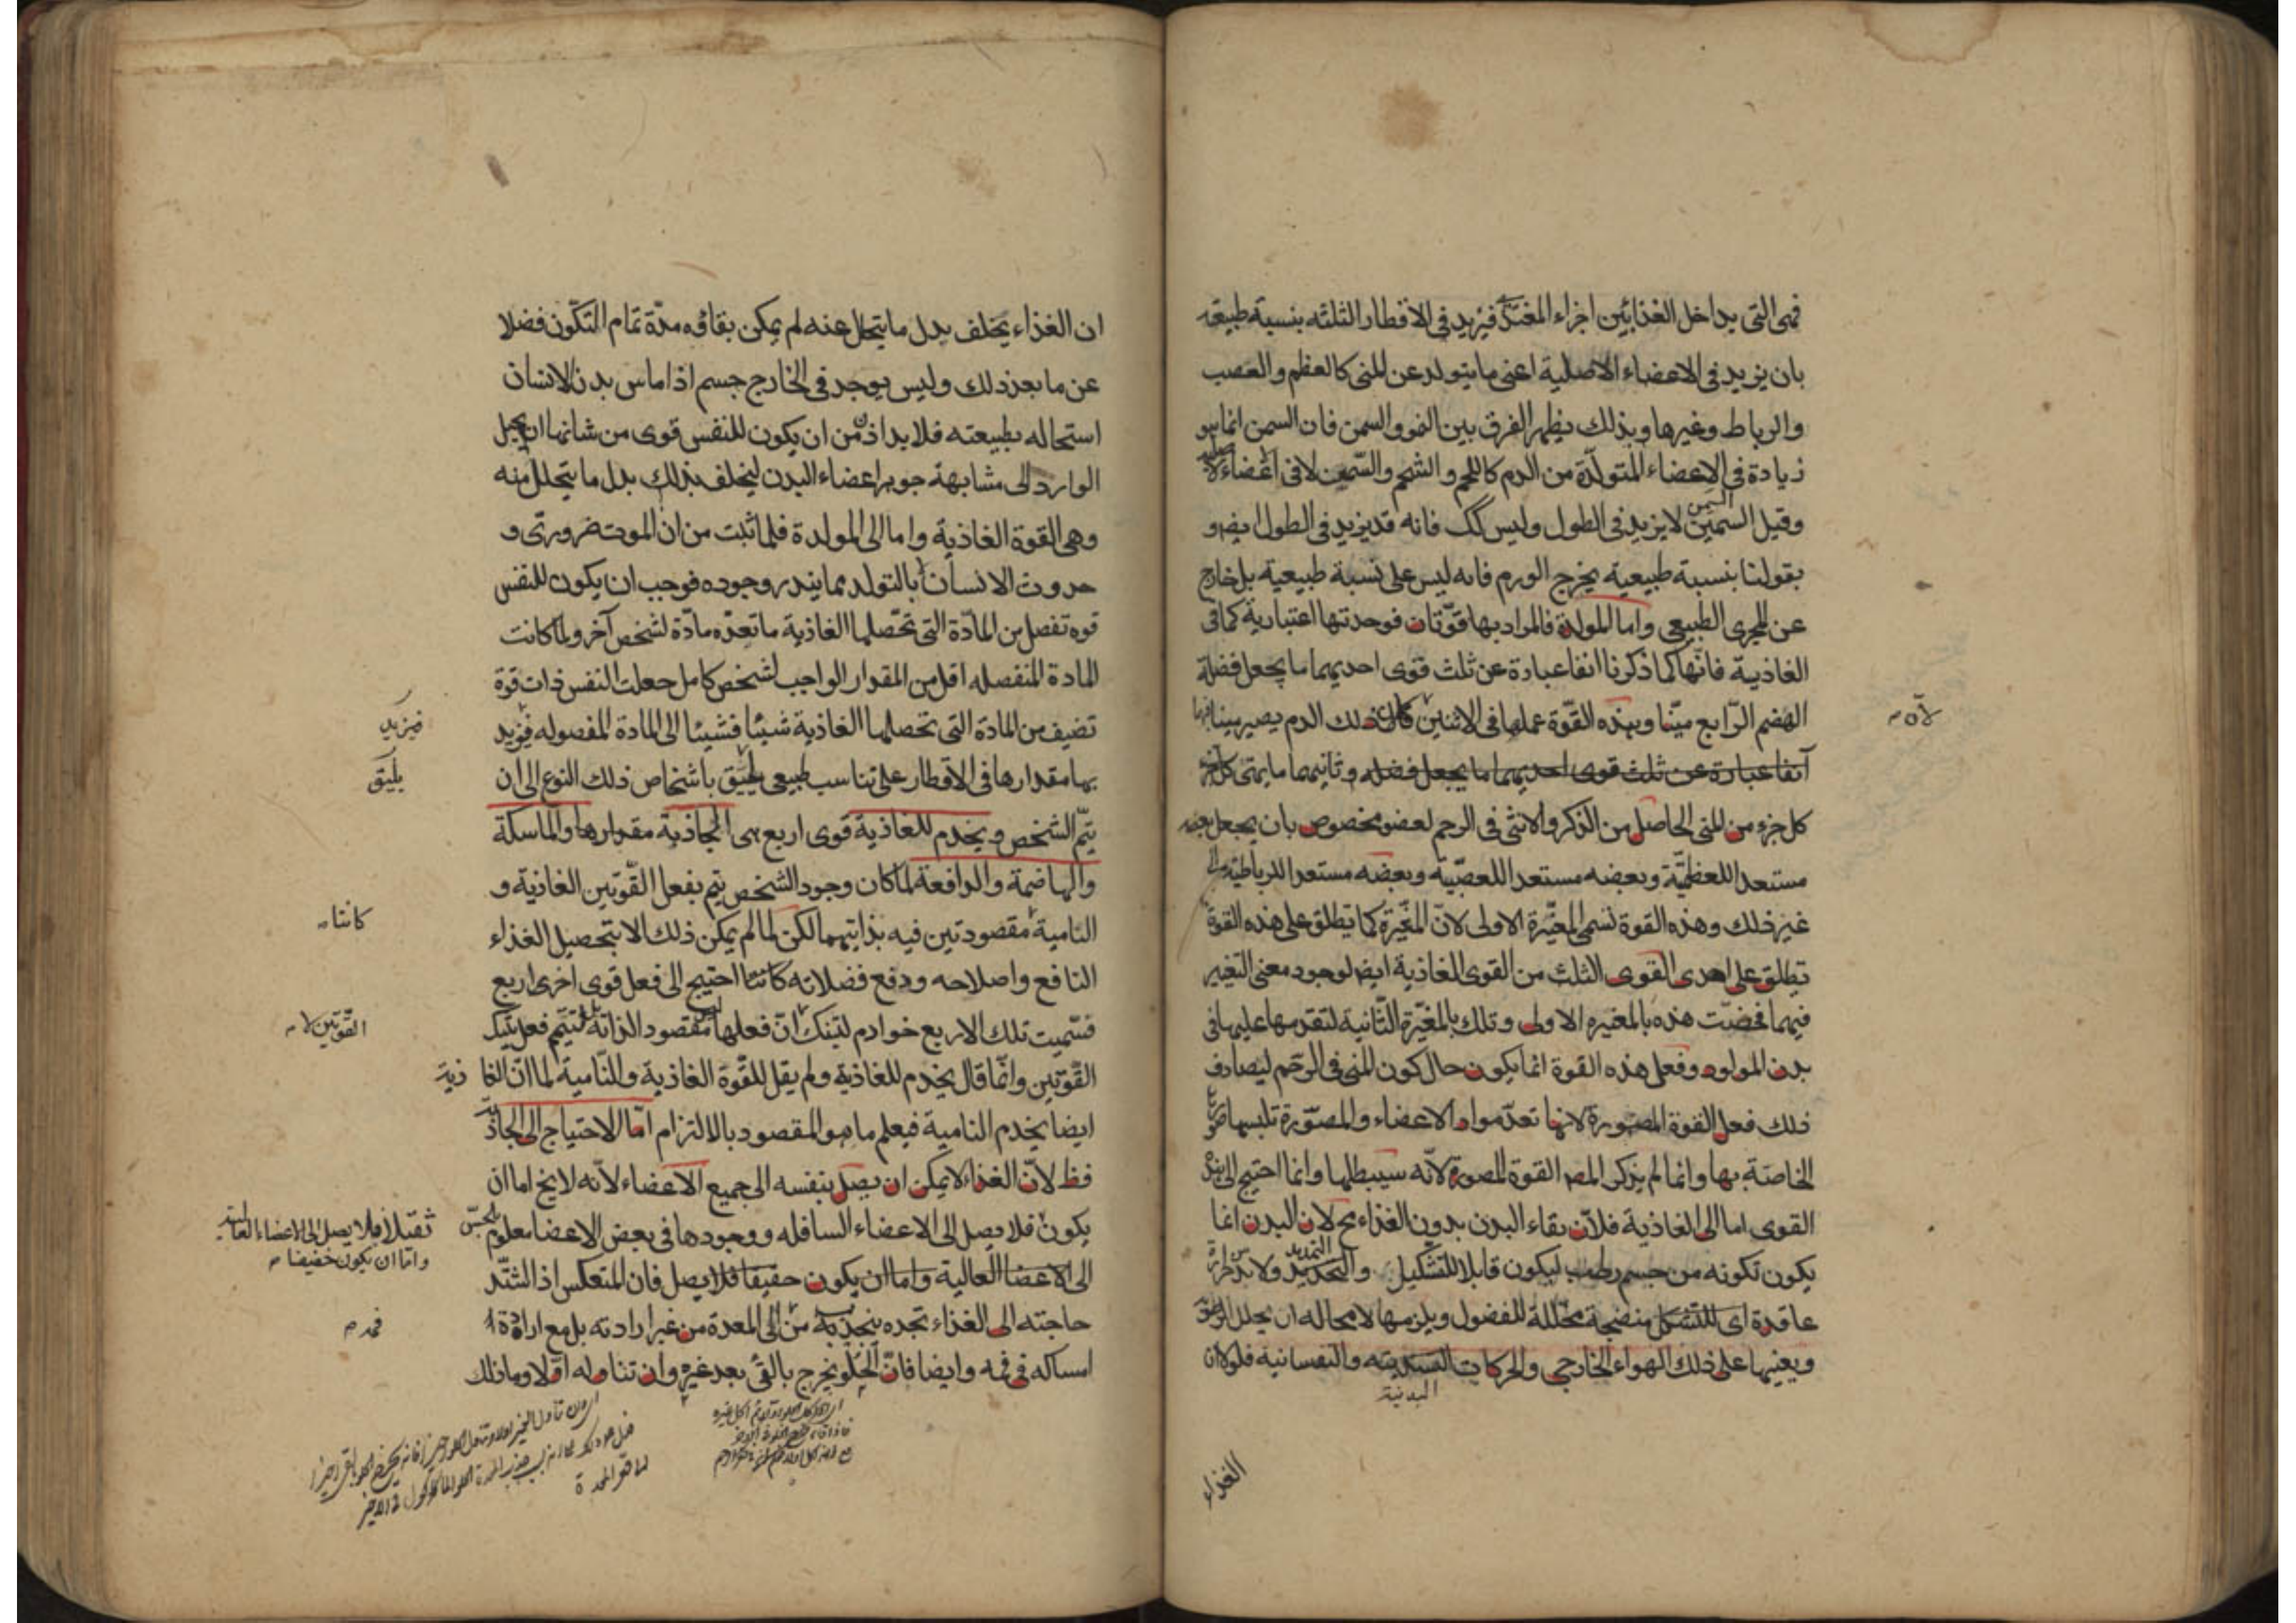 فهى التى يداخل الغذا بين اجزاء المغتذى فيزيد فى الاقطار الثلثه بنسبة طبيعية
بان يزيد فى الاعضاء الاصلية اعنى ما يتولد عن المنى كالعظم والعصب
والرباط وغيرها وبذلك يظهر الفرق بين النمو والسمن فان السمن انما هو
زيادة فى الاعضاء المتولدة من الدم كاللحم والشحم والسمين لا فى اعضاء الاصلية
وقيل السمين السمن لا يزيد فى الطول وليس كك فانه قد يزيد فى الطول ايضا و
بقولنا بنسبة طبيعية يخرج الورم فانه ليس على نسبة طبيعية بل خارج
عن المجرى الطبيعى واما المولدة فالمراد بها قوتان فوحدتها اعتبارية كما فى
الغاذية فانها كما ذكرنا انفا عبارة عن ثلث قوى احديهما ما يجعل فضلة
الهضم الرابع منيا وهذه القوة عملها فى الانثيين لان ذلك الدم يصير منيا فيها
لان
آنفا عبارة عن ثلث قوى احديهما ما يجعل فضله وثانيهما ما يهيئ كل جزء
كل جزء من المنى الحاصل من الذكر والانثى فى الرحم لعضو مخصوص بان يجعل بعضه
مستعدا للعظمية وبعضه مستعدا للعصبية وبعضه مستعدا للرباطية الى
غير ذلك وهذه القوة تسمى المغيرة الاولى لان المغيرة كما تطلق على هذه القوة
تطلق على احدى القوى الثلث من القوى الغاذية ايضا لوجود معنى التغيير
فيهما فخصت هذه بالمغيره الاولى وتلك بالمغيرة الثانية لتقدمها عليها فى
بدن المولود وفعل هذه القوة انما يكون حال كون المنى فى الرحم ليصادف
ذلك فعل القوة المصورة لانها تعد مواد الاعضاء والمصورة تلبسها صورها
الخاصة بها وانما لم يذكر المصـ القوة المصورة لانه سيبطلها وانما احتيج الى هذه
القوى اما الى الغاذية فلان بقاء البدن بدون الغذاء مح لان البدن انما
يكون تكونه من جسم رطب ليكون قابلا للتشكيل والتمديد ولا بد من حرارة
عاقدة اى للتشكل منضجة محللة للفضول ويلزمها لا محاله ان يحلل الرطوبة
ويعينها على ذلك الهواء الخارجى والحركات البدنية والنفسانية فلولا ان
الغذاء
ان الغذاء يخلف بدل ما يتحلل عنه لم يمكن بقاؤه مدة تمام التكون فضلا
عن ما بعد ذلك وليس يوجد فى الخارج جسم اذا ماس بدن الانسان
استحاله بطبيعته فلا بد اذن من ان يكون للنفس قوى من شانها ان يحيل
الوارد الى مشابهة جوهر اعضاء البدن ليخلف بذلك بدل ما يتحلل منه
وهى القوة الغاذية واما الى المولدة فلما ثبت من ان الموت ضرورى و
حدوث الانسان بالتولد مما يندر وجوده فوجب ان يكون للنفس
قوه تفصل من المادة التى تحصلها الغاذية ما تعده مادة لشخص آخر ولما كانت
المادة المنفصله اقل من المقدار الواجب لشخص كامل جعلت النفس ذات قوة
تضيف من المادة التى تحصلها الغاذية شيئا فشيئا الى المادة المفصوله فيزيد
فيزيد
بها مقدارها فى الاقطار على تناسب طبيعى يليق باشخاص ذلك النوع الى ان
يليق
يتم الشخص ويخدم للغاذية قوى اربع هى الجاذبة مقدارها والماسكة
والهاضمة والدافعة لما كان وجود الشخص يتم بفعل القوتين الغاذية و
النامية مقصودتين فيه بذاتيهما لكن لما لم يمكن ذلك الا بتحصيل الغذاء
كانتا
النافع واصلاحه ودفع فضلاته كانتا احتيج الى فعل قوى اخرى اربع
فسميت تلك الاربع خوادم لتينك ان فعلها ليس مقصود الذاته بل ليتم فعل تينك
القوتين لا
القوتين وانما قال يخدم للغاذية ولم يقل للقوة الغاذية والنامية لما ان الغاذية
ايضا يخدم النامية فيعلم ما هو المقصود بالالتزام اما الاحتياج الى الجاذبة
فظ لان الغذاء لا يمكن ان يصل بنفسه الى جميع الاعضاء لانه لا يخ اما ان
يكون فلا يصل الى الاعضاء السافله ووجودها فى بعض الاعضا معلوم بالحس
ثقيلا فلا يصل الى الاعضاء العالية
واما ان يكون خفيفا
الى الاعضا العالية واما ان يكون خفيفا فلا يصل فان المتعكس اذا اشتد
حاجته الى الغذاء تجده ينجذبه من الى المعدة من غير ارادته بل مع ارادة
فمه
امساكه فى فمه وايضا فان الحلو يخرج بالقئ بعد غيره وان تناوله اولا وما ذلك